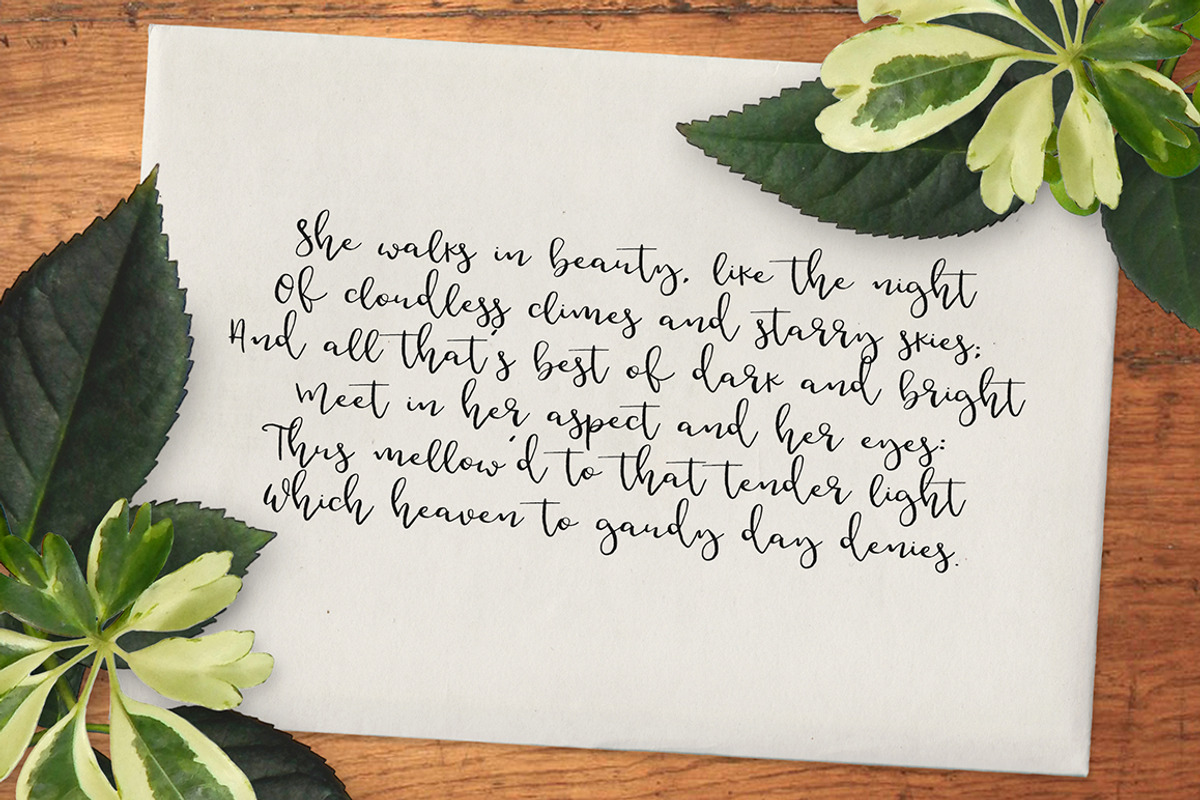 She walks in beauty, like the night
Of cloudless climes and starry skies;
And all that's best of dark and bright
Meet in her aspect and her eyes:
Thus mellow'd to that tender light
Which heaven to gaudy day denies.